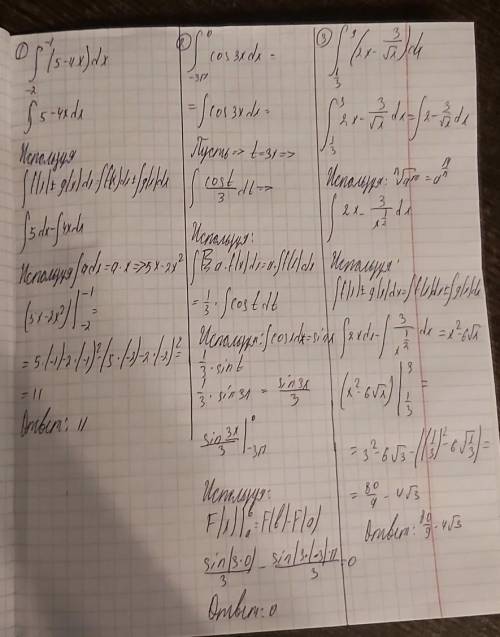 ①
∫_{-2}^{-1} (5-4x)dx
∫ 5-4x dx
Используя
∫f(x)±g(x)dx=∫f(x)dx±∫g(x)dx
∫5dx-∫4xdx
Используя ∫a dx=a·x=>5x-2x²
(5x-2x²)|_{-2}^{-1}=
=5·(-1)-2·(-1)²-(5·(-2)-2·(-2)²=
=11
Ответ: 11
②
∫_{-3π}^{0} cos3xdx=
=∫cos3xdx=
Пусть=>t=3x=>
∫ cost/3 dt=>
Используя:
∫a·f(x)dx=a·∫f(x)dx
=1/3·∫cost dt
Используя:∫cosxdx=sinx
1/3·sint
1/3·sin3x = sin3x/3
sin3x/3 |_{-3π}^{0}
Используя:
F(x)|_{a}^{b}=F(b)-F(a)
sin(3·0)/3 - sin(3·(-3)π)/3=0
Ответ:0
③
∫_{1/3}^{3} (2x-3/√x)dx
∫_{1/3}^{3} 2x-3/√x dx=∫2-3/√x dx
Используя: ⁿ√a^m=a^{m/n}
∫2x-3/x^{1/2} dx
Используя:
∫f(x)±g(x)dx=∫f(x)dx±∫g(x)dx
∫2xdx-∫3/x^{1/2} dx=x²-6√x
(x²-6√x)|_{1/3}^{3}=
=3²-6√3-((1/3)²-6√(1/3))=
=80/9-4√3
Ответ: 80/9-4√3